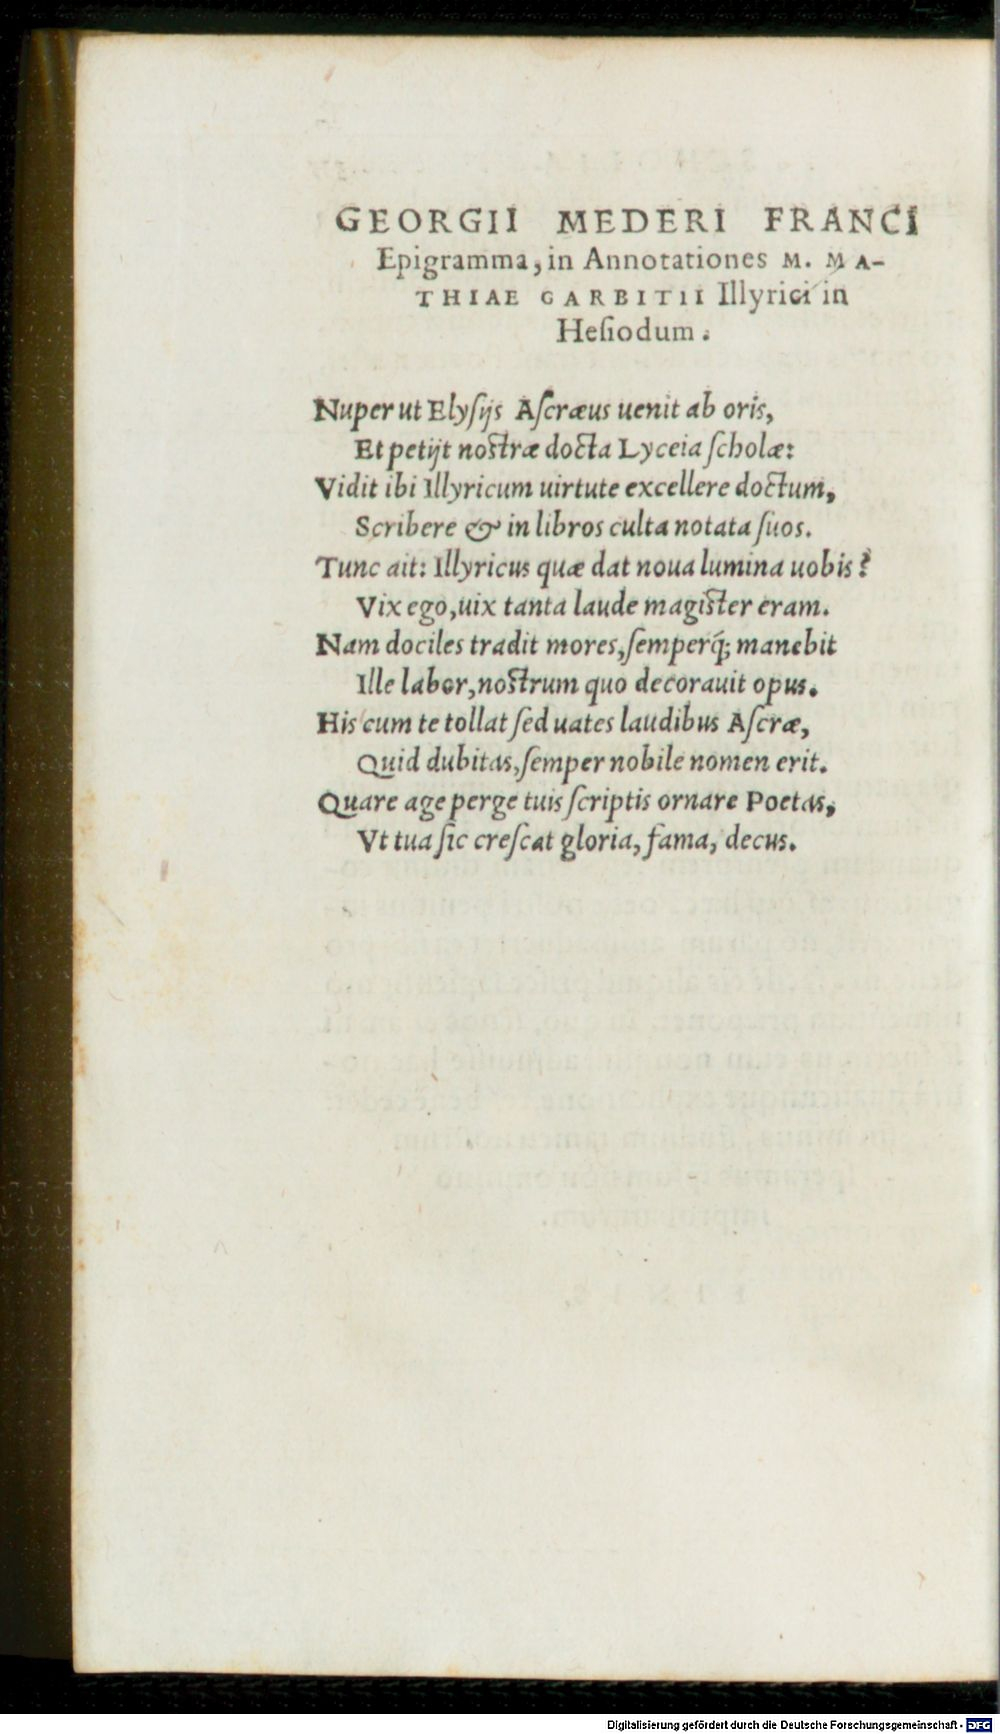 GEORGII MEDERI FRANCI
Epigramma, in Annotationes M. MA-
THIAE GARBITII Illyrici in
Heſiodum.
Nuper ut Elyſijs Aſcræus uenit ab oris,
Et petijt noſtræ docta Lyceia ſcholæ:
Vidit ibi Illyricum uirtute excellere doctum,
Scribere & in libros culta notata ſuos.
Tunc ait: Illyricus quæ dat noua lumina uobis?
Vix ego, uix tanta laude magiſter eram.
Nam dociles tradit mores, ſemperq́; manebit
Ille labor, noſtrum quo decorauit opus.
His cum te tollat ſed uates laudibus Aſcræ,
Quid dubitas, ſemper nobile nomen erit.
Quare age perge tuis ſcriptis ornare Poetas,
Vt tua ſic creſcat gloria, fama, decus.
Digitalisierung gefördert durch die Deutsche Forschungsgemeinschaft - DFG